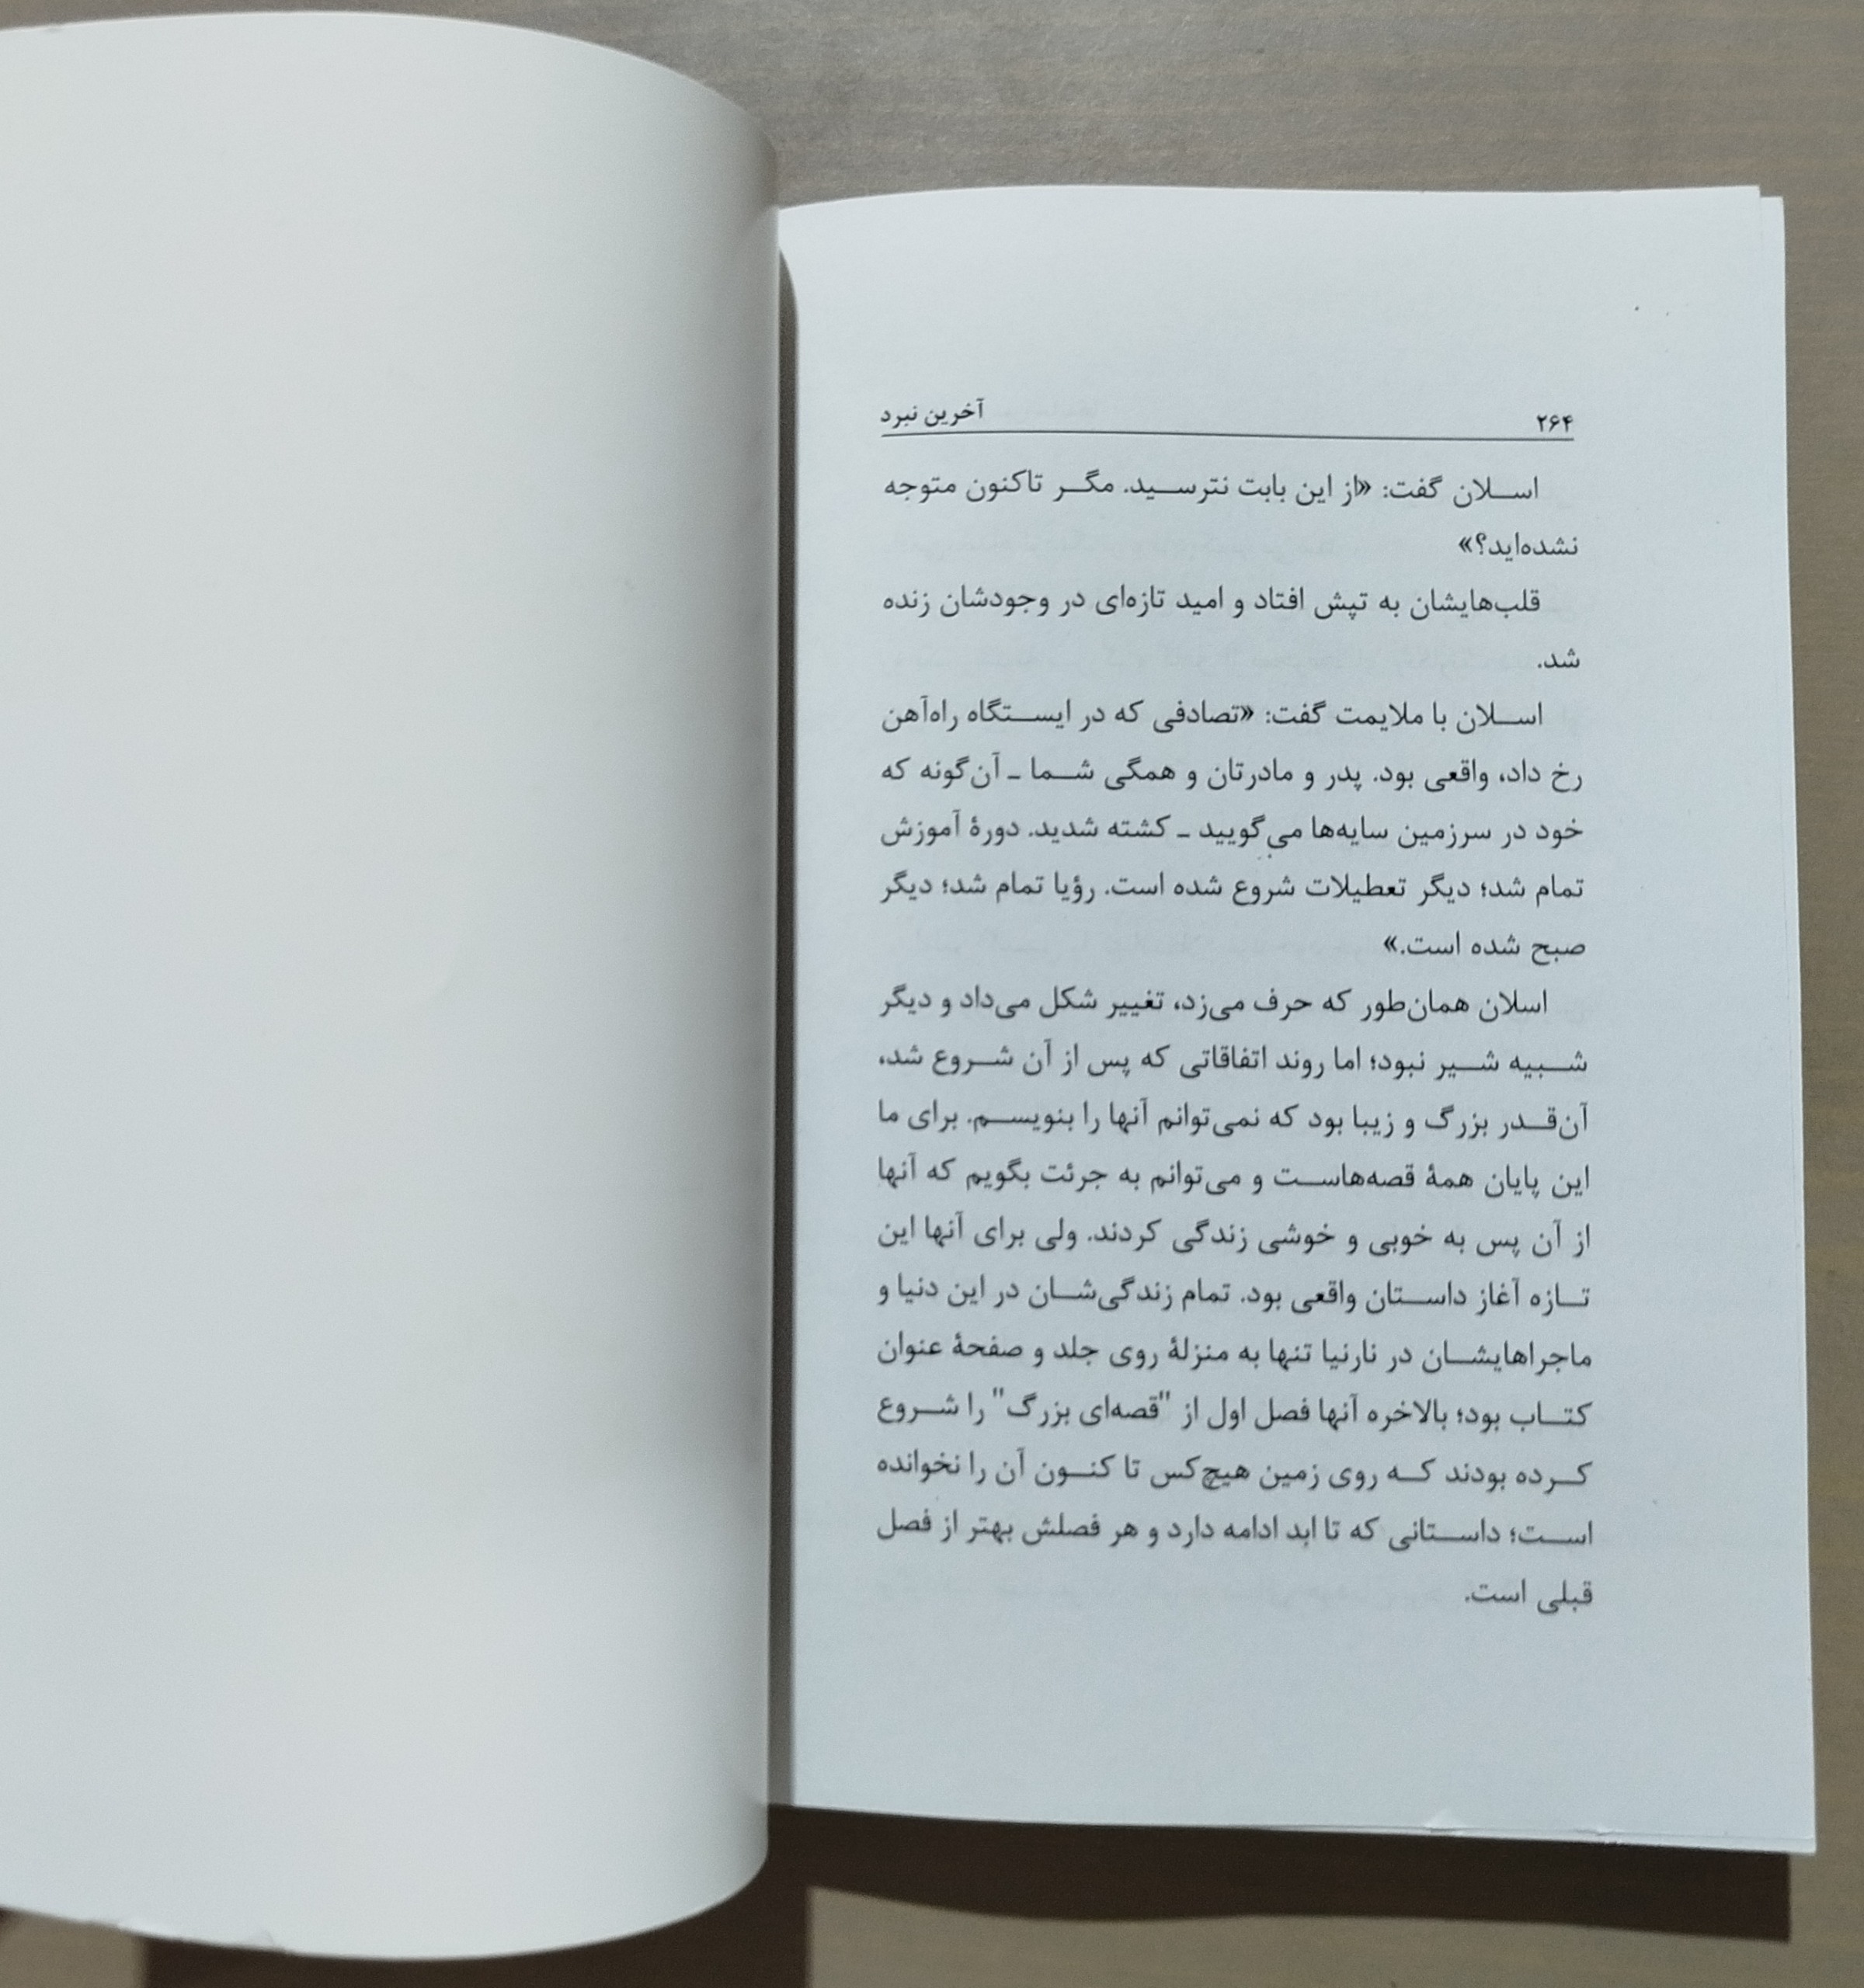 ۲۶۴ آخرین نبرد
اسلان گفت: «از این بابت نترسید. مگر تاکنون متوجه
نشده‌اید؟»
قلب‌هایشان به تپش افتاد و امید تازه‌ای در وجودشان زنده
شد.
اسلان با ملایمت گفت: «تصادفی که در ایستگاه راه‌آهن
رخ داد، واقعی بود. پدر و مادرتان و همگی شما ـ آن‌گونه که
خود در سرزمین سایه‌ها می‌گویید ـ کشته شدید. دورۀ آموزش
تمام شد؛ دیگر تعطیلات شروع شده است. رؤیا تمام شد؛ دیگر
صبح شده است.»
اسلان همان‌طور که حرف می‌زد، تغییر شکل می‌داد و دیگر
شبیه شیر نبود؛ اما روند اتفاقاتی که پس از آن شروع شد،
آن‌قدر بزرگ و زیبا بود که نمی‌توانم آنها را بنویسم. برای ما
این پایان همۀ قصه‌هاست و می‌توانم به جرئت بگویم که آنها
از آن پس به خوبی و خوشی زندگی کردند. ولی برای آنها این
تازه آغاز داستان واقعی بود. تمام زندگی‌شان در این دنیا و
ماجراهایشان در نارنیا تنها به منزلۀ روی جلد و صفحۀ عنوان
کتاب بود؛ بالاخره آنها فصل اول از "قصه‌ای بزرگ" را شروع
کرده بودند که روی زمین هیچ‌کس تا کنون آن را نخوانده
است؛ داستانی که تا ابد ادامه دارد و هر فصلش بهتر از فصل
قبلی است.